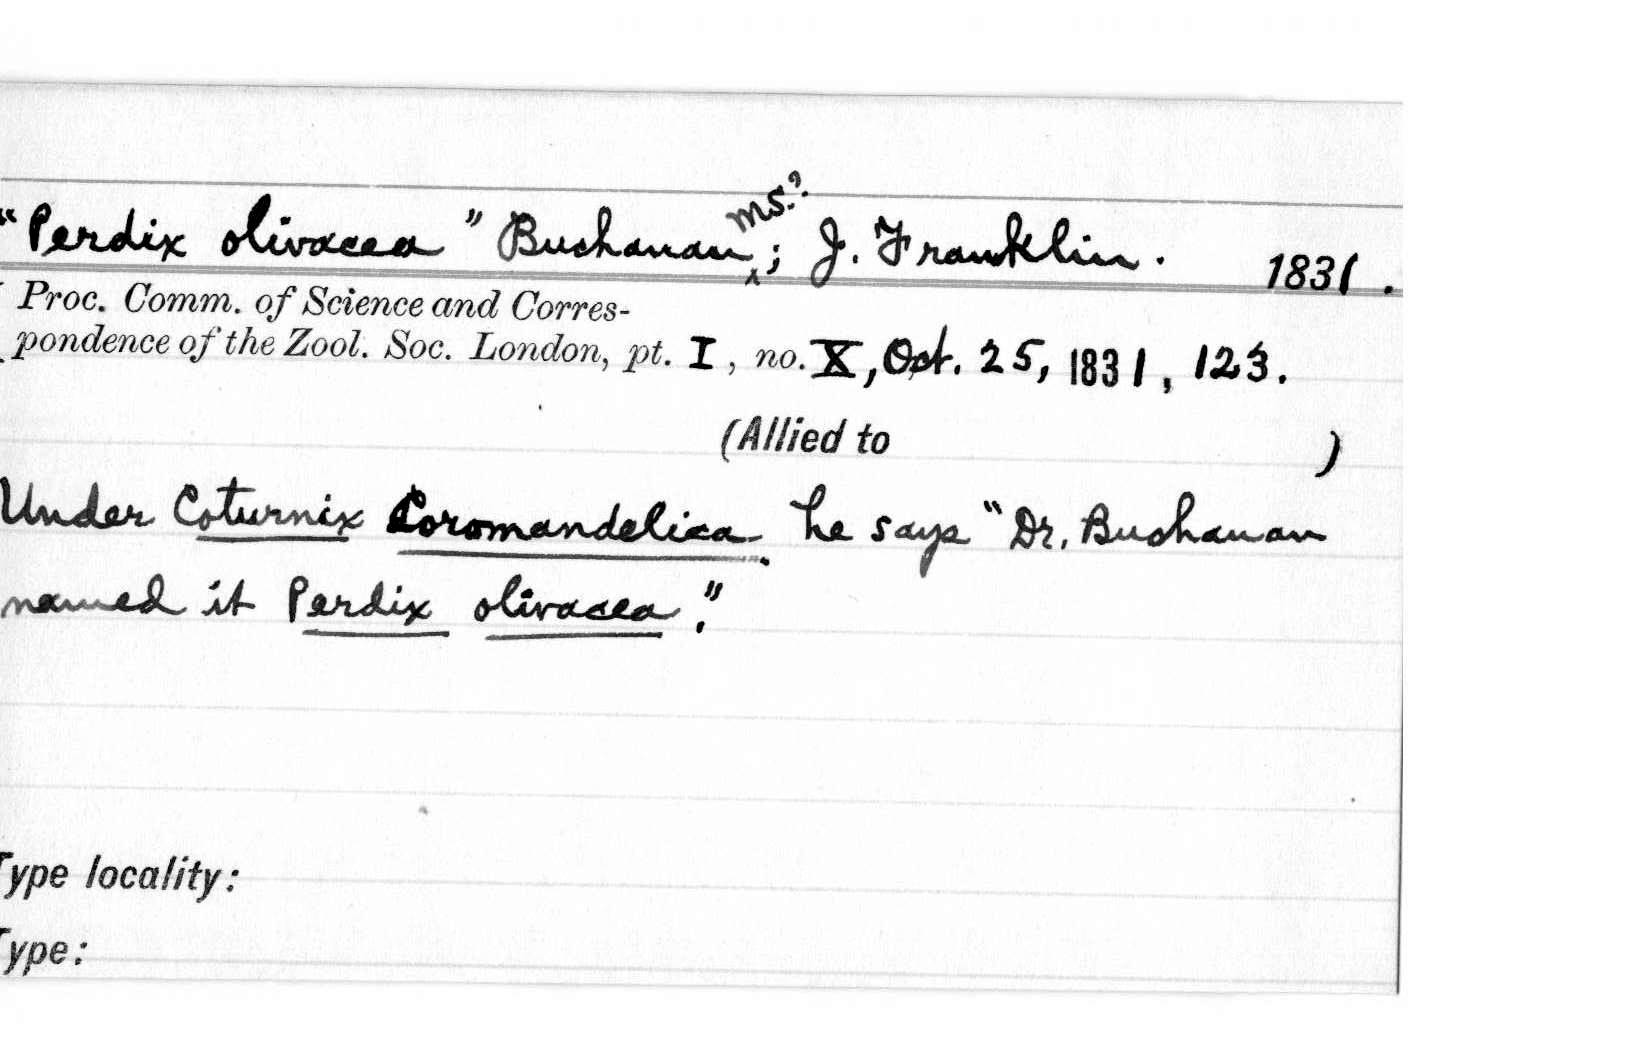 "Perdix olivacea" Buchanan ms.?; J. Franklin. 1831.
Proc. Comm. of Science and Corres-
pondence of the Zool. Soc. London, pt. I, no. X, Oct. 25, 1831, 123.
(Allied to )
Under Coturnix Coromandelica he says "Dr. Buchanan
named it Perdix olivacea."
Type locality:
Type: